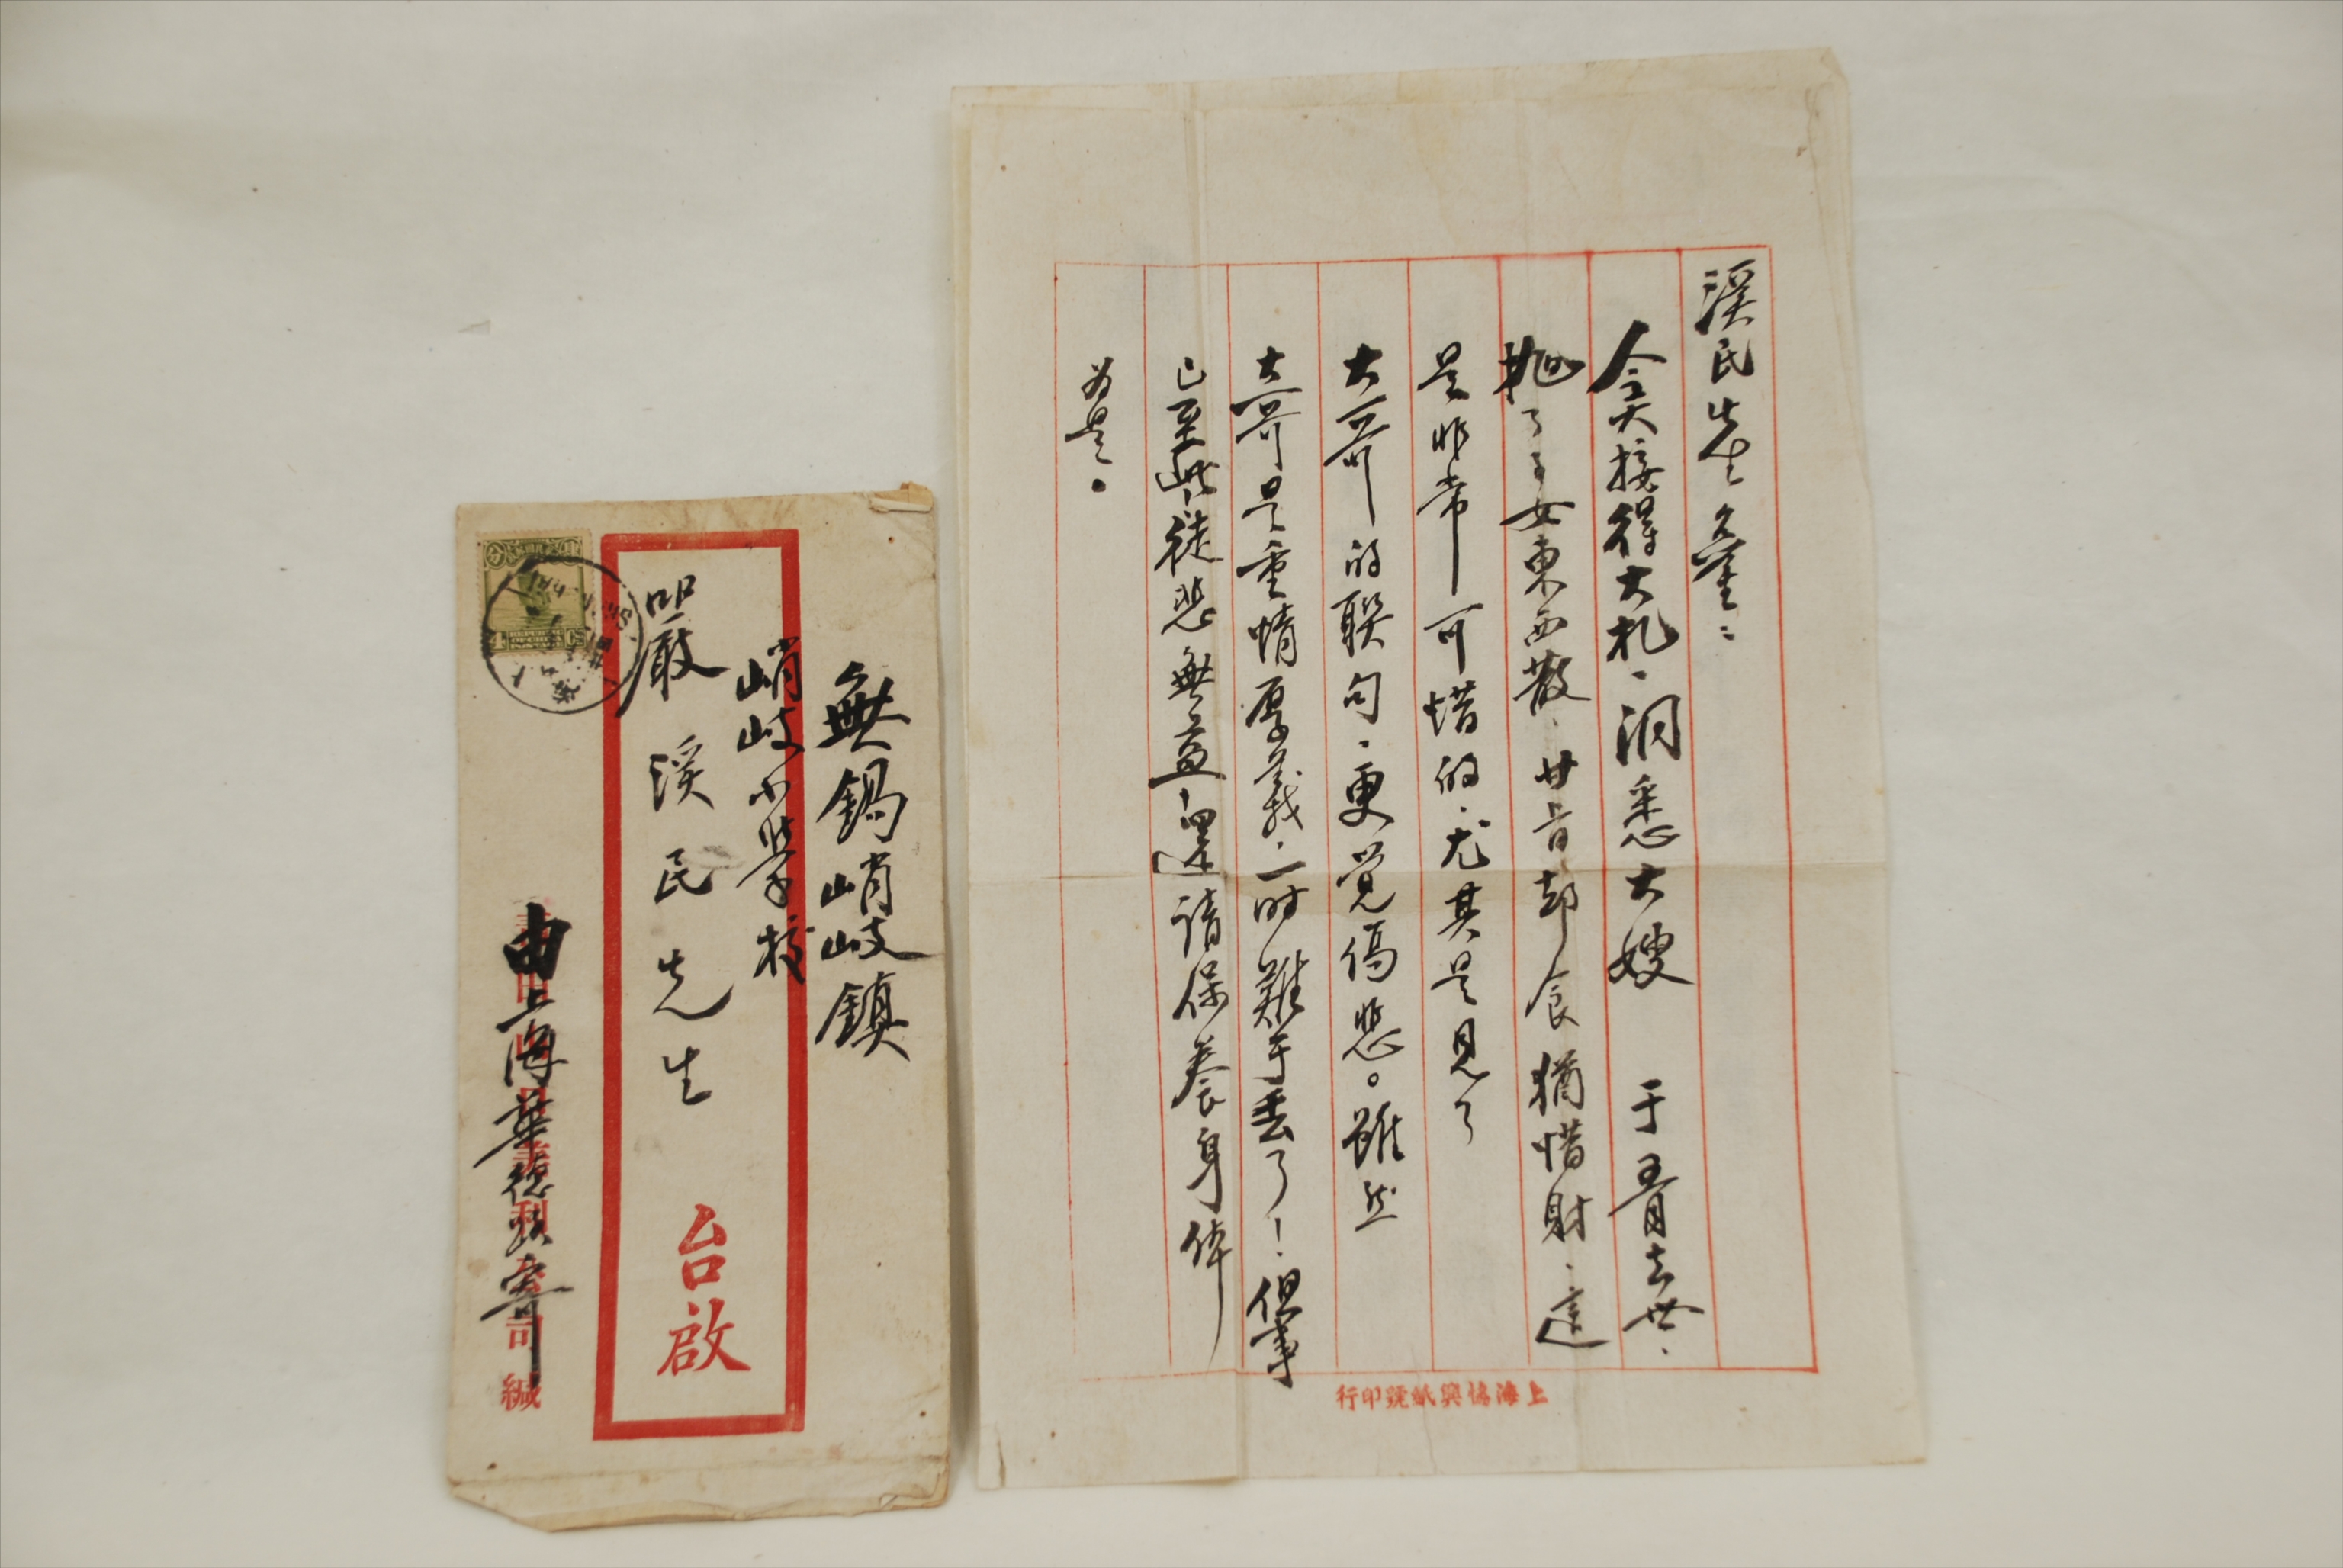 溪民先生鑒：
今天接得大札、洞悉大嫂　于五月去世、
拋了子女東西散、廿旨却食猶惜財、這
是非常可惜的、尤其是見了
大哥的聯句、更覺傷悲。雖然
大哥是重情厚義、一时難于丟了！但事
已至此、徒悲無益、還請保養身体
为是。
上海協興紙號印行
無錫峭岐鎮
峭岐小學校
嚴溪民先生
台啟
由上海華德路寄
司緘
4 CTS
REPUBLIC
OF CHINA
POSTAGE